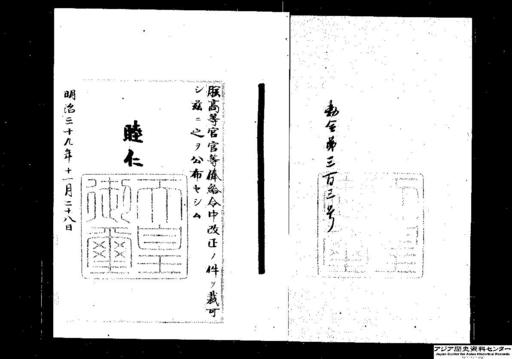 勅令第三百三号
朕高等官官等俸給令中改正ノ件ヲ裁可
シ茲ニ之ヲ公布セシム
睦仁
天皇
御璽
明治三十九年十一月二十八日
アジア歴史資料センター
Japan Center for Asian Historical Records